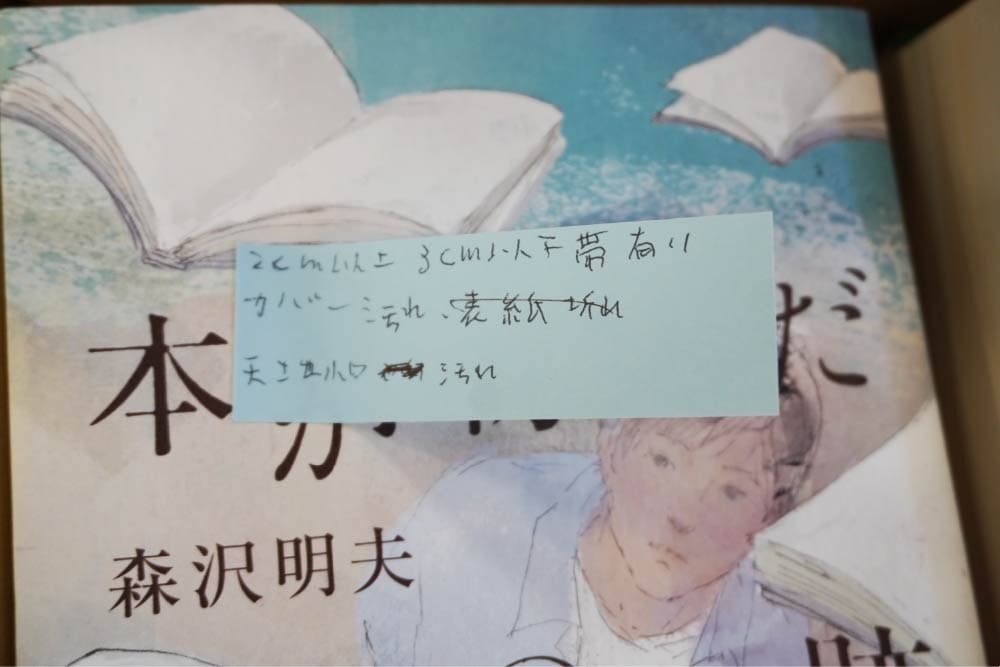 2cm以上 3cm以下 帯 有り
カバー 汚れ、表紙 折れ
天 小口 汚れ
本が
だ
森沢明夫